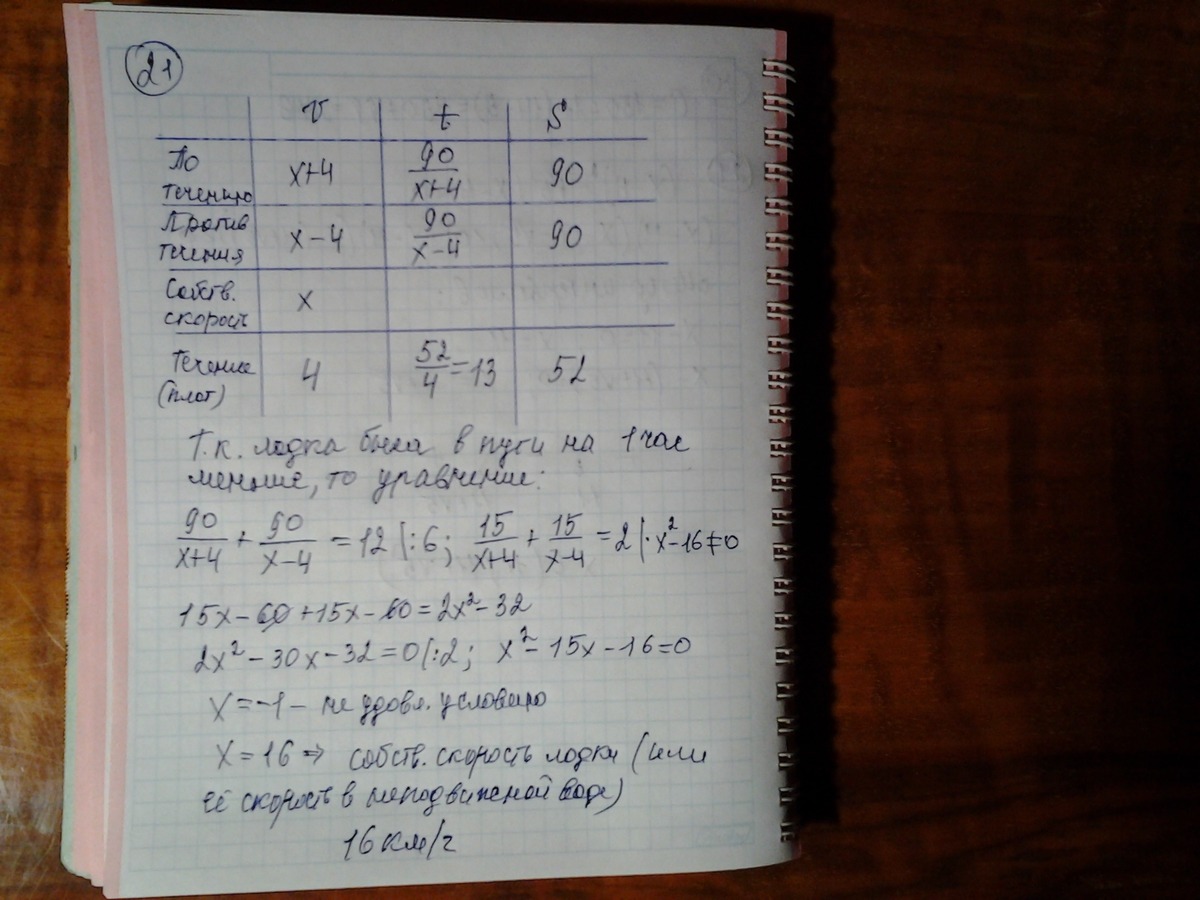 21
v t S
По течению x+4 90/(x+4) 90
Против течения x-4 90/(x-4) 90
Собств. скорость x
Течение (плот) 4 52/4=13 52
Т.к. лодка была в пути на 1 час
меньше, то уравнение:
90/(x+4) + 90/(x-4) = 12 |:6; 15/(x+4) + 15/(x-4) = 2 |· x²-16≠0
15x-60+15x-60=2x²-32
2x²-30x-32=0 |:2; x²-15x-16=0
x=-1 - не удовл. условию
x=16 ⇒ собств. скорость лодки (или
её скорость в неподвижной воде)
16 км/ч